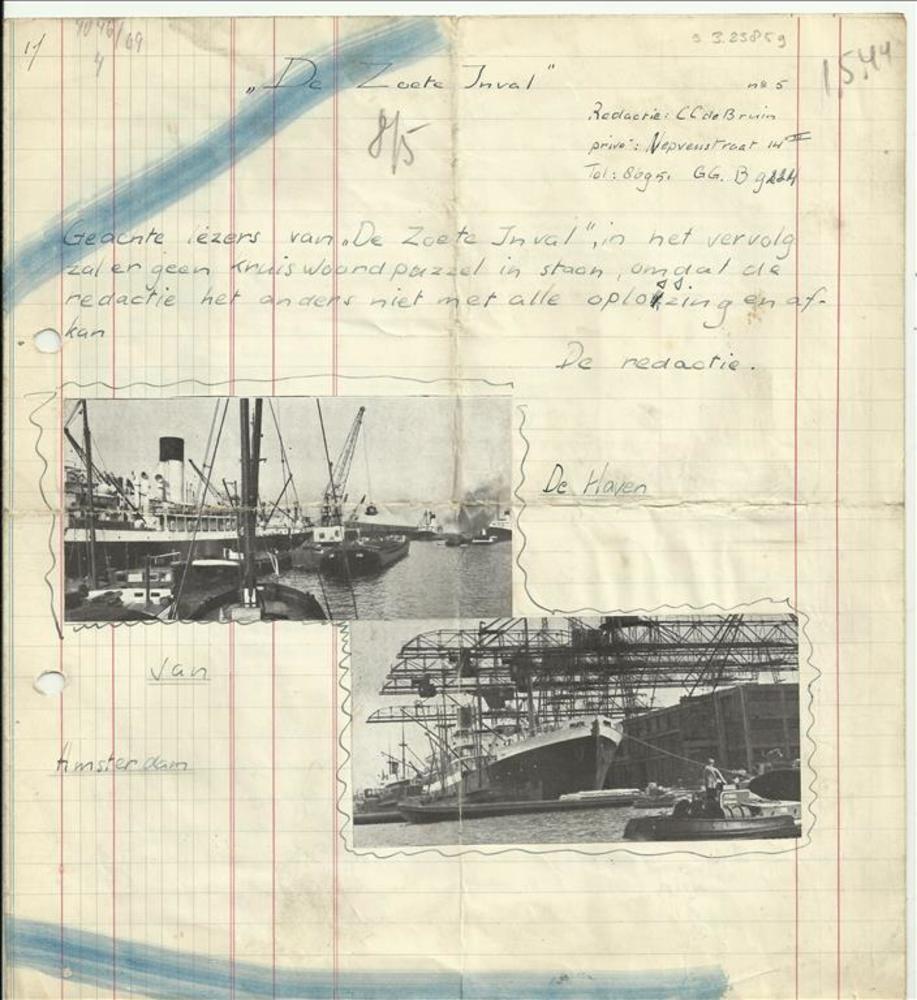 1/
4
3.3.2385g
15,44
„De Zoete Inval"
no 5
8/5
Redactie: CC de Bruin
privé: Nepveustraat 14 II
GG. B
Geachte lezers van „De Zoete Inval", in het vervolg
zal er geen kruiswoordpuzzel in staan, omdat de
redactie het anders niet met alle oplossing en af-
kan
De redactie.
De Haven
van
Amsterdam